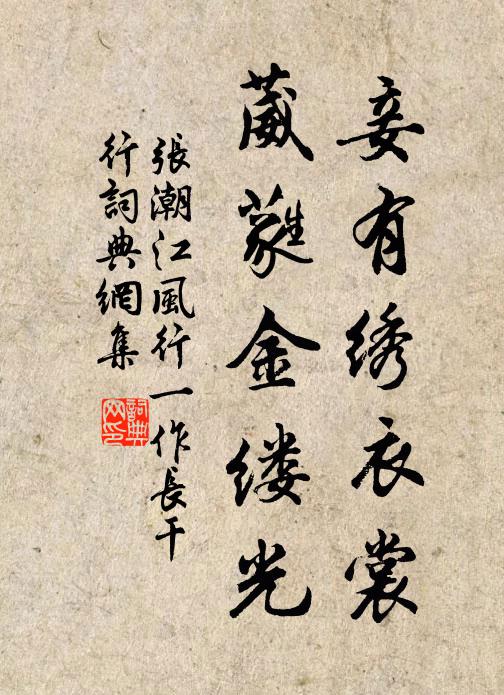 妾有绣衣裳
葳蕤金缕光
張潮江風行一作長干
行詞典網集
詞典网印